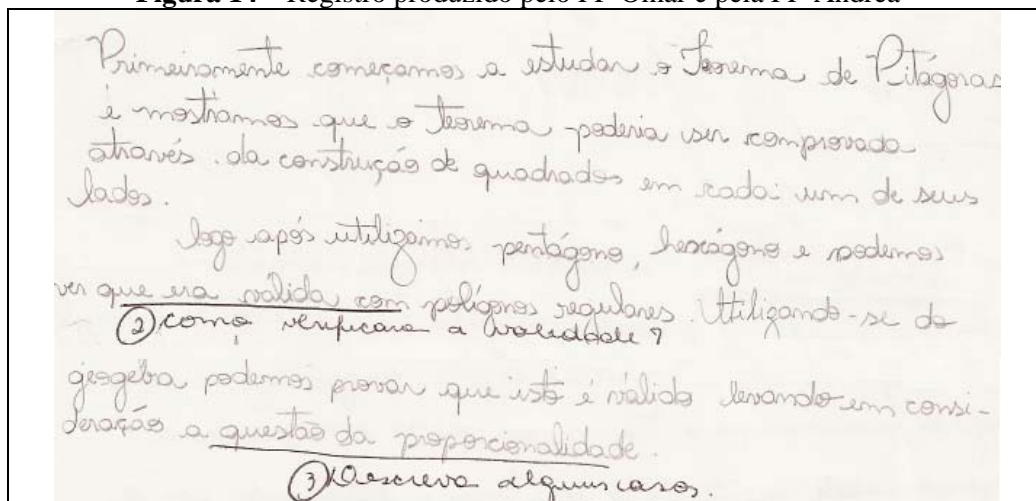 Figura 14 – Registro produzido pelo PP Omar e pela PP Andrea
Primeiramente começamos a estudar o Teorema de Pitágoras
e mostramos que o teorema poderia ser comprovado
através da construção de quadrados em cada um de seus
lados.
logo após utilizamos pentágono, hexágono e podemos
ver que era válida com polígonos regulares. Utilizando-se do
② como verificara a validade?
geogebra podemos provar que isto é válido levando em consi-
deração a questão da proporcionalidade.
③ Descreva alguns casos.